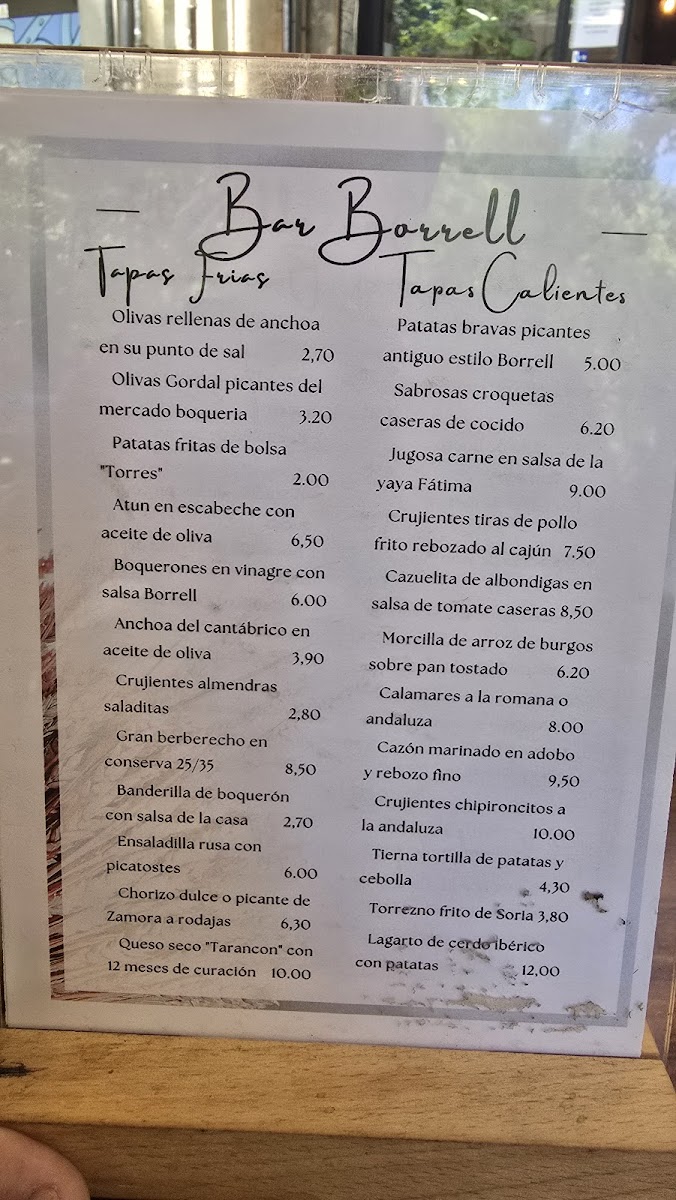 Bar Borrell
Tapas Frias
Olivas rellenas de anchoa
en su punto de sal 2,70
Olivas Gordal picantes del
mercado boqueria 3.20
Patatas fritas de bolsa
"Torres" 2.00
Atun en escabeche con
aceite de oliva 6,50
Boquerones en vinagre con
salsa Borrell 6.00
Anchoa del cantábrico en
aceite de oliva 3,90
Crujientes almendras
saladitas 2,80
Gran berberecho en
conserva 25/35 8,50
Banderilla de boquerón
con salsa de la casa 2,70
Ensaladilla rusa con
picatostes 6.00
Chorizo dulce o picante de
Zamora a rodajas 6,30
Queso seco "Tarancon" con
12 meses de curación 10.00
Tapas Calientes
Patatas bravas picantes
antiguo estilo Borrell 5.00
Sabrosas croquetas
caseras de cocido 6.20
Jugosa carne en salsa de la
yaya Fátima 9.00
Crujientes tiras de pollo
frito rebozado al cajún 7.50
Cazuelita de albondigas en
salsa de tomate caseras 8,50
Morcilla de arroz de burgos
sobre pan tostado 6.20
Calamares a la romana o
andaluza 8.00
Cazón marinado en adobo
y rebozo fino 9,50
Crujientes chipironcitos a
la andaluza 10.00
Tierna tortilla de patatas y
cebolla 4,30
Torrezno frito de Soria 3,80
Lagarto de cerdo ibérico
con patatas 12,00